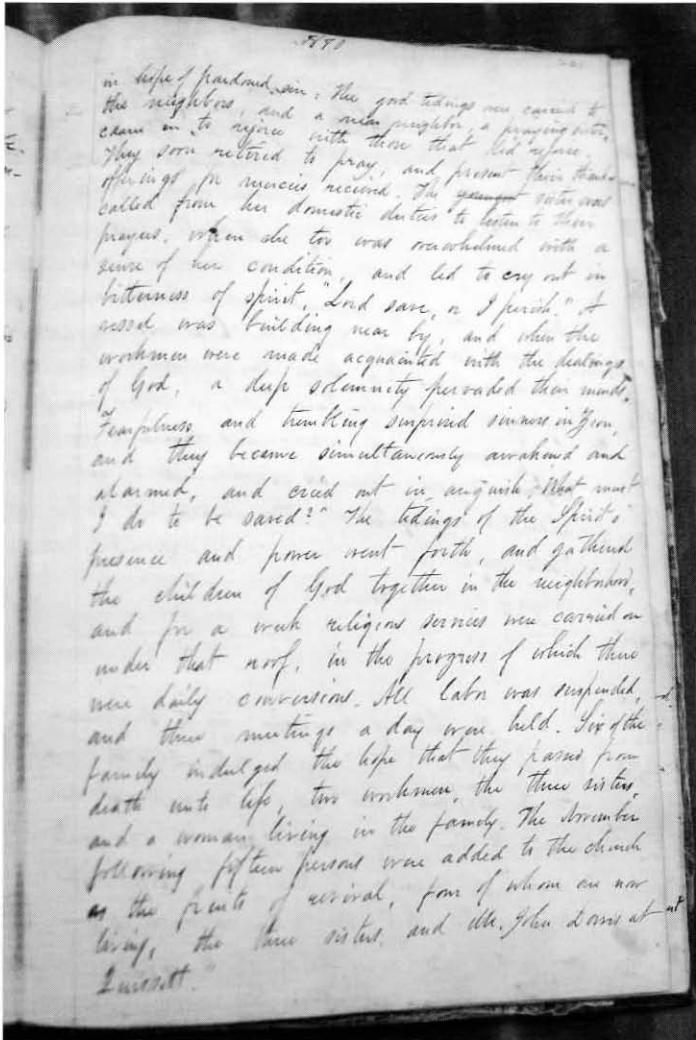 1890
in hope of pardoned sin: The good tidings were carried to
the neighbors, and a near neighbor, a praying sister,
came in to rejoice with those that did rejoice.
They soon retired to pray, and present their thank
offerings for mercies received. The youngest sister was
called from her domestic duties to listen to their
prayers, when she too was overwhelmed with a
sense of her condition, and led to cry out in
bitterness of spirit, "Lord save, or I perish." A
vessel was building near by, and when the
workmen were made acquainted with the dealings
of God, a deep solemnity pervaded their minds.
Fearfulness and trembling surprised sinners in Zion,
and they became simultaneously awakened and
alarmed, and cried out in anguish, "What must
I do to be saved?" The tidings of the Spirit's
presence and power went forth, and gathered
the children of God together in the neighborhood,
and for a week religious services were carried on
under that roof, in the progress of which there
were daily conversions. All labor was suspended,
and three meetings a day were held. Six of the
family indulged the hope that they passed from
death unto life, two workmen, the three sisters,
and a woman living in the family. The November
following fifteen persons were added to the church
as the fruits of revival, four of whom are now
living, the three sisters, and Mr. John Davis at
Quissett."